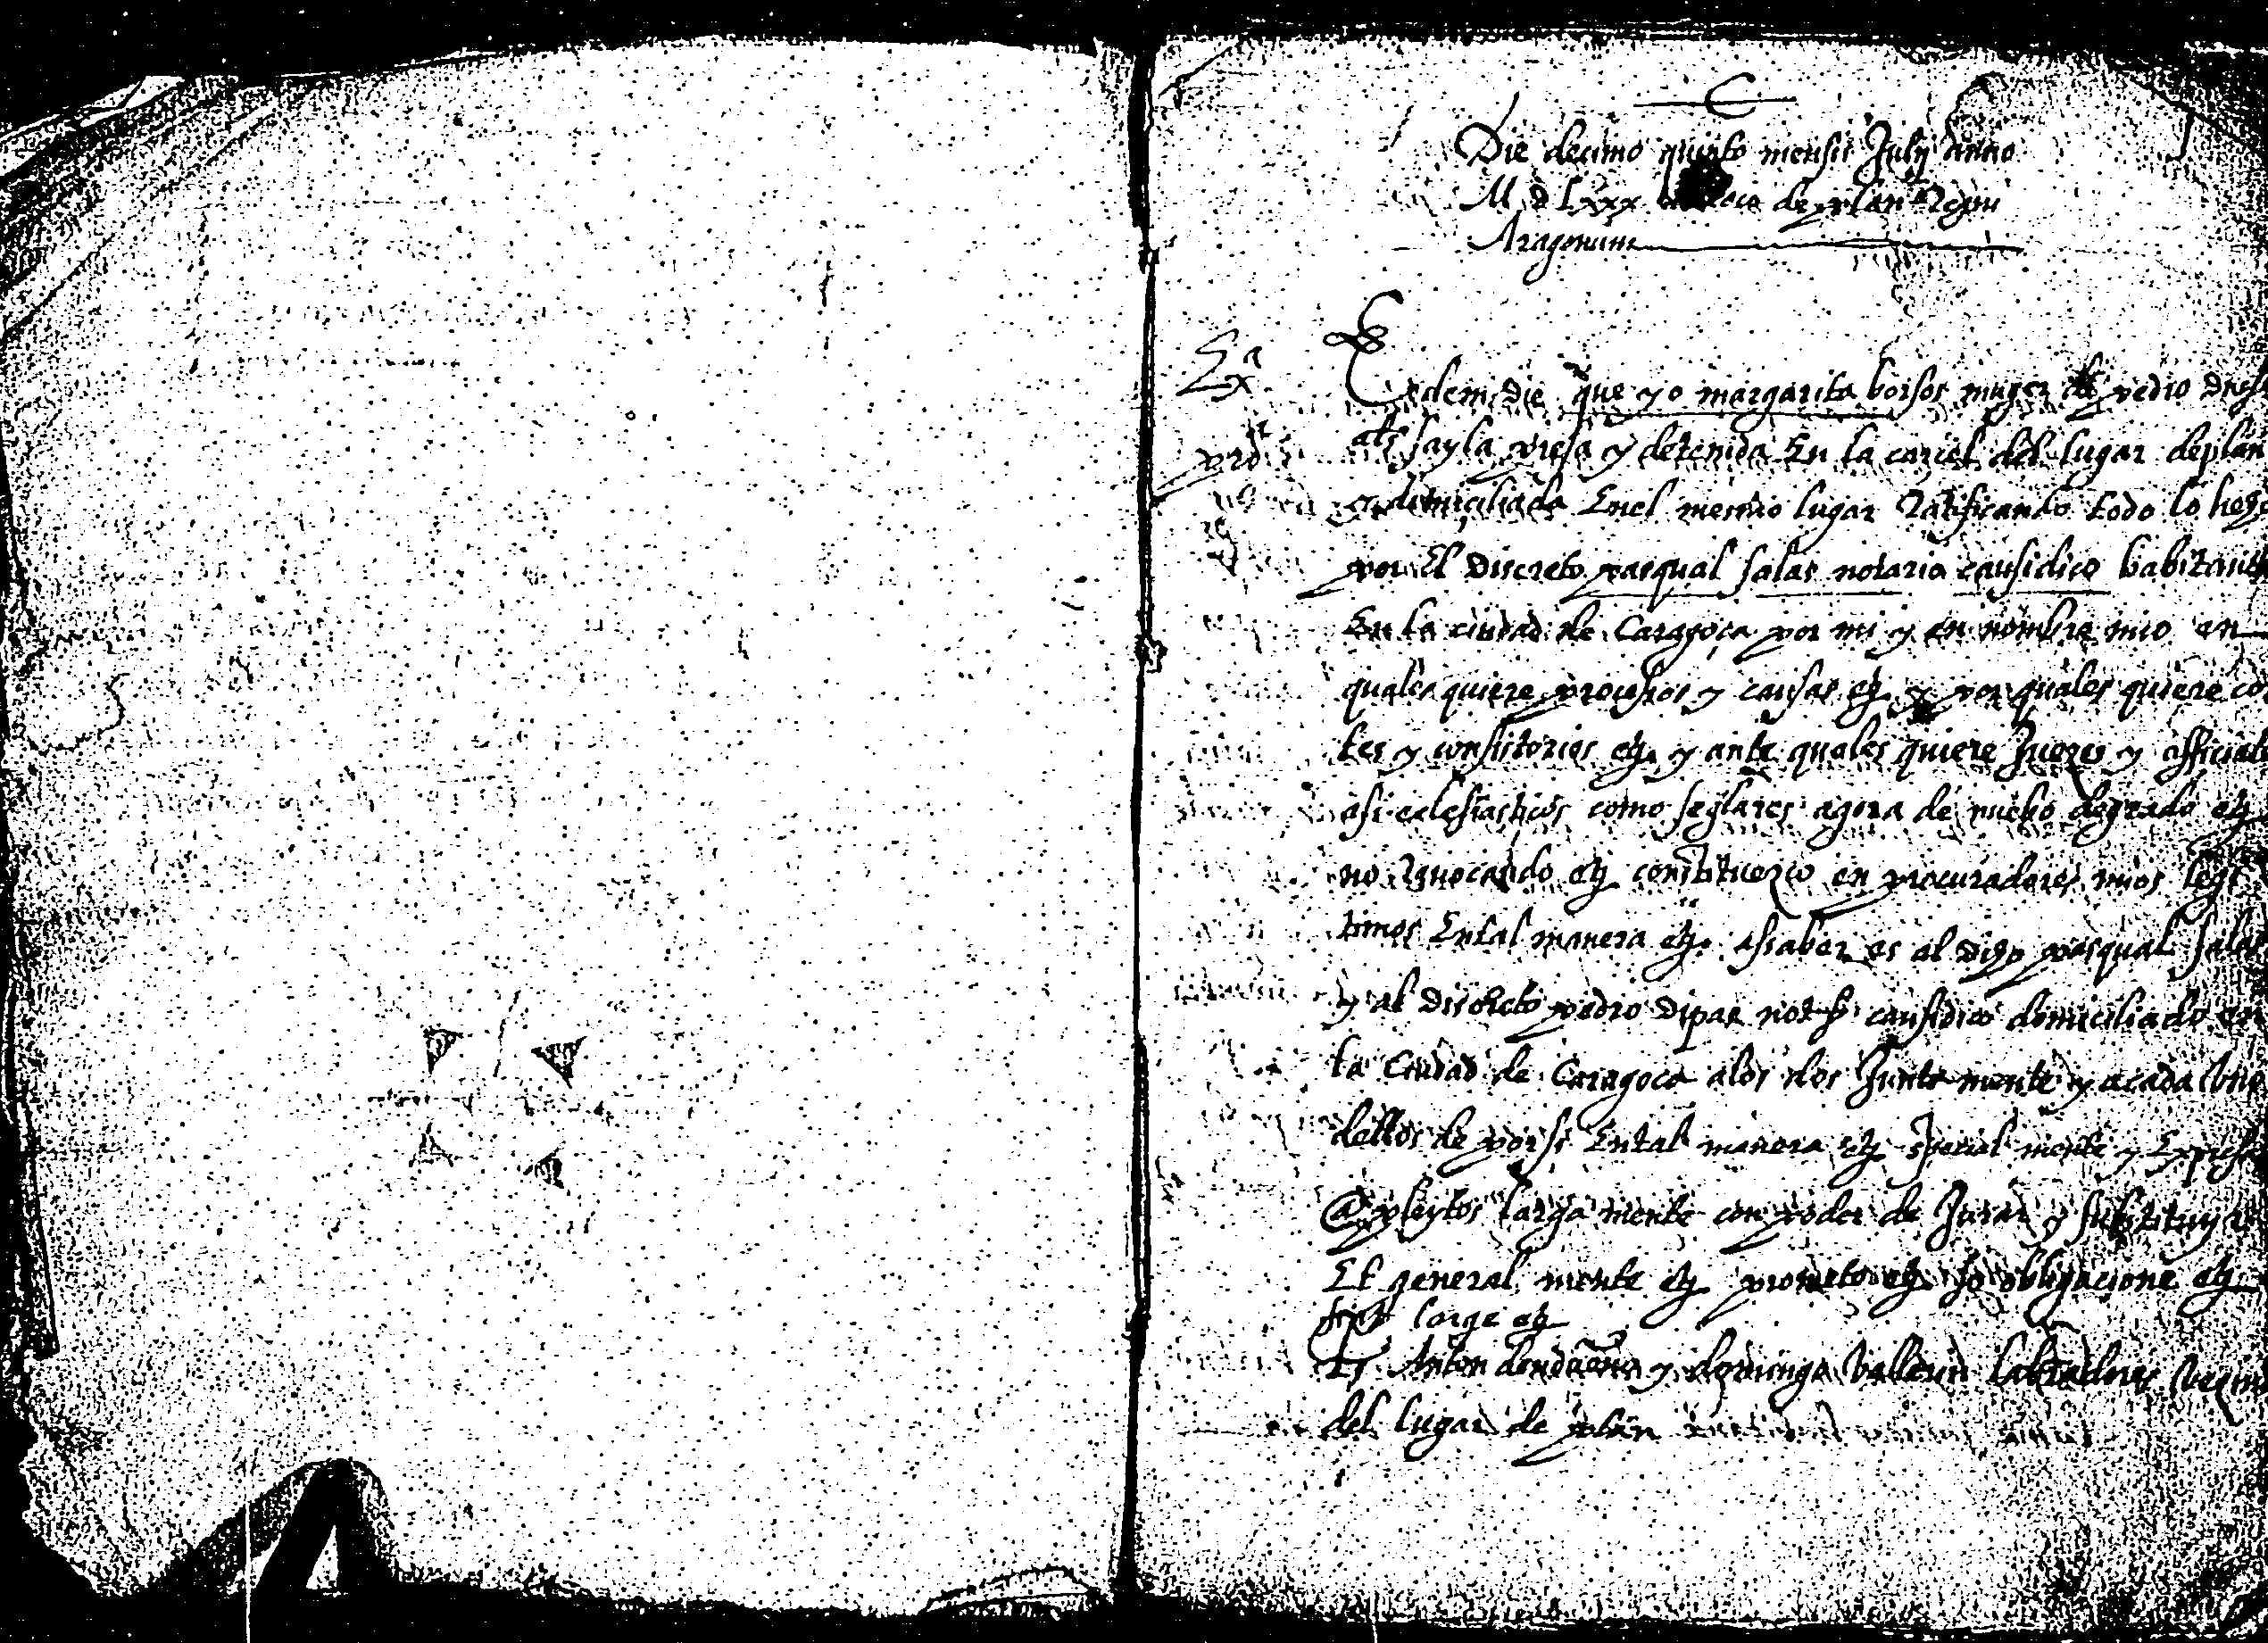 Die decimo quinto mensis Julij anno
M D Lxxx loco de plan Regni
Aragonum
Exª
Eodem die que yo margarita borsos muger de pedro
als sayla presa y detenida En la carcel del lugar de plan
domiciliada Enel mesmo lugar Ratificando todo lo
por El discreto pasqual salas notario causidico habitante
En la ciudad de Caragoça por mi y en nombre mio en
quales quiere processos y causas etz y por quales quiere co
tes y consistorios etz y ante quales quiere Juezes y officiales
asi eclesiasticos como seglares agora de nuebo de grado etz
no Reuocando etz constituezco en procuradores mios legi
timos En tal manera etz assaber es al dicho pasqual salas
y al discreto pedro dipas not causidico domiciliado en
la Ciudad de Caragoça a los dos Junta mente y a cada uno
dellos de por si En tal manera etz special mente y Expressa
a pleytos larga mente con poder de Jurar y substituyr
Et general mente etz prometo etz so obligacione etz
large etz
Ts Anton y domingo ballerin labradores vezinos
del lugar de plan